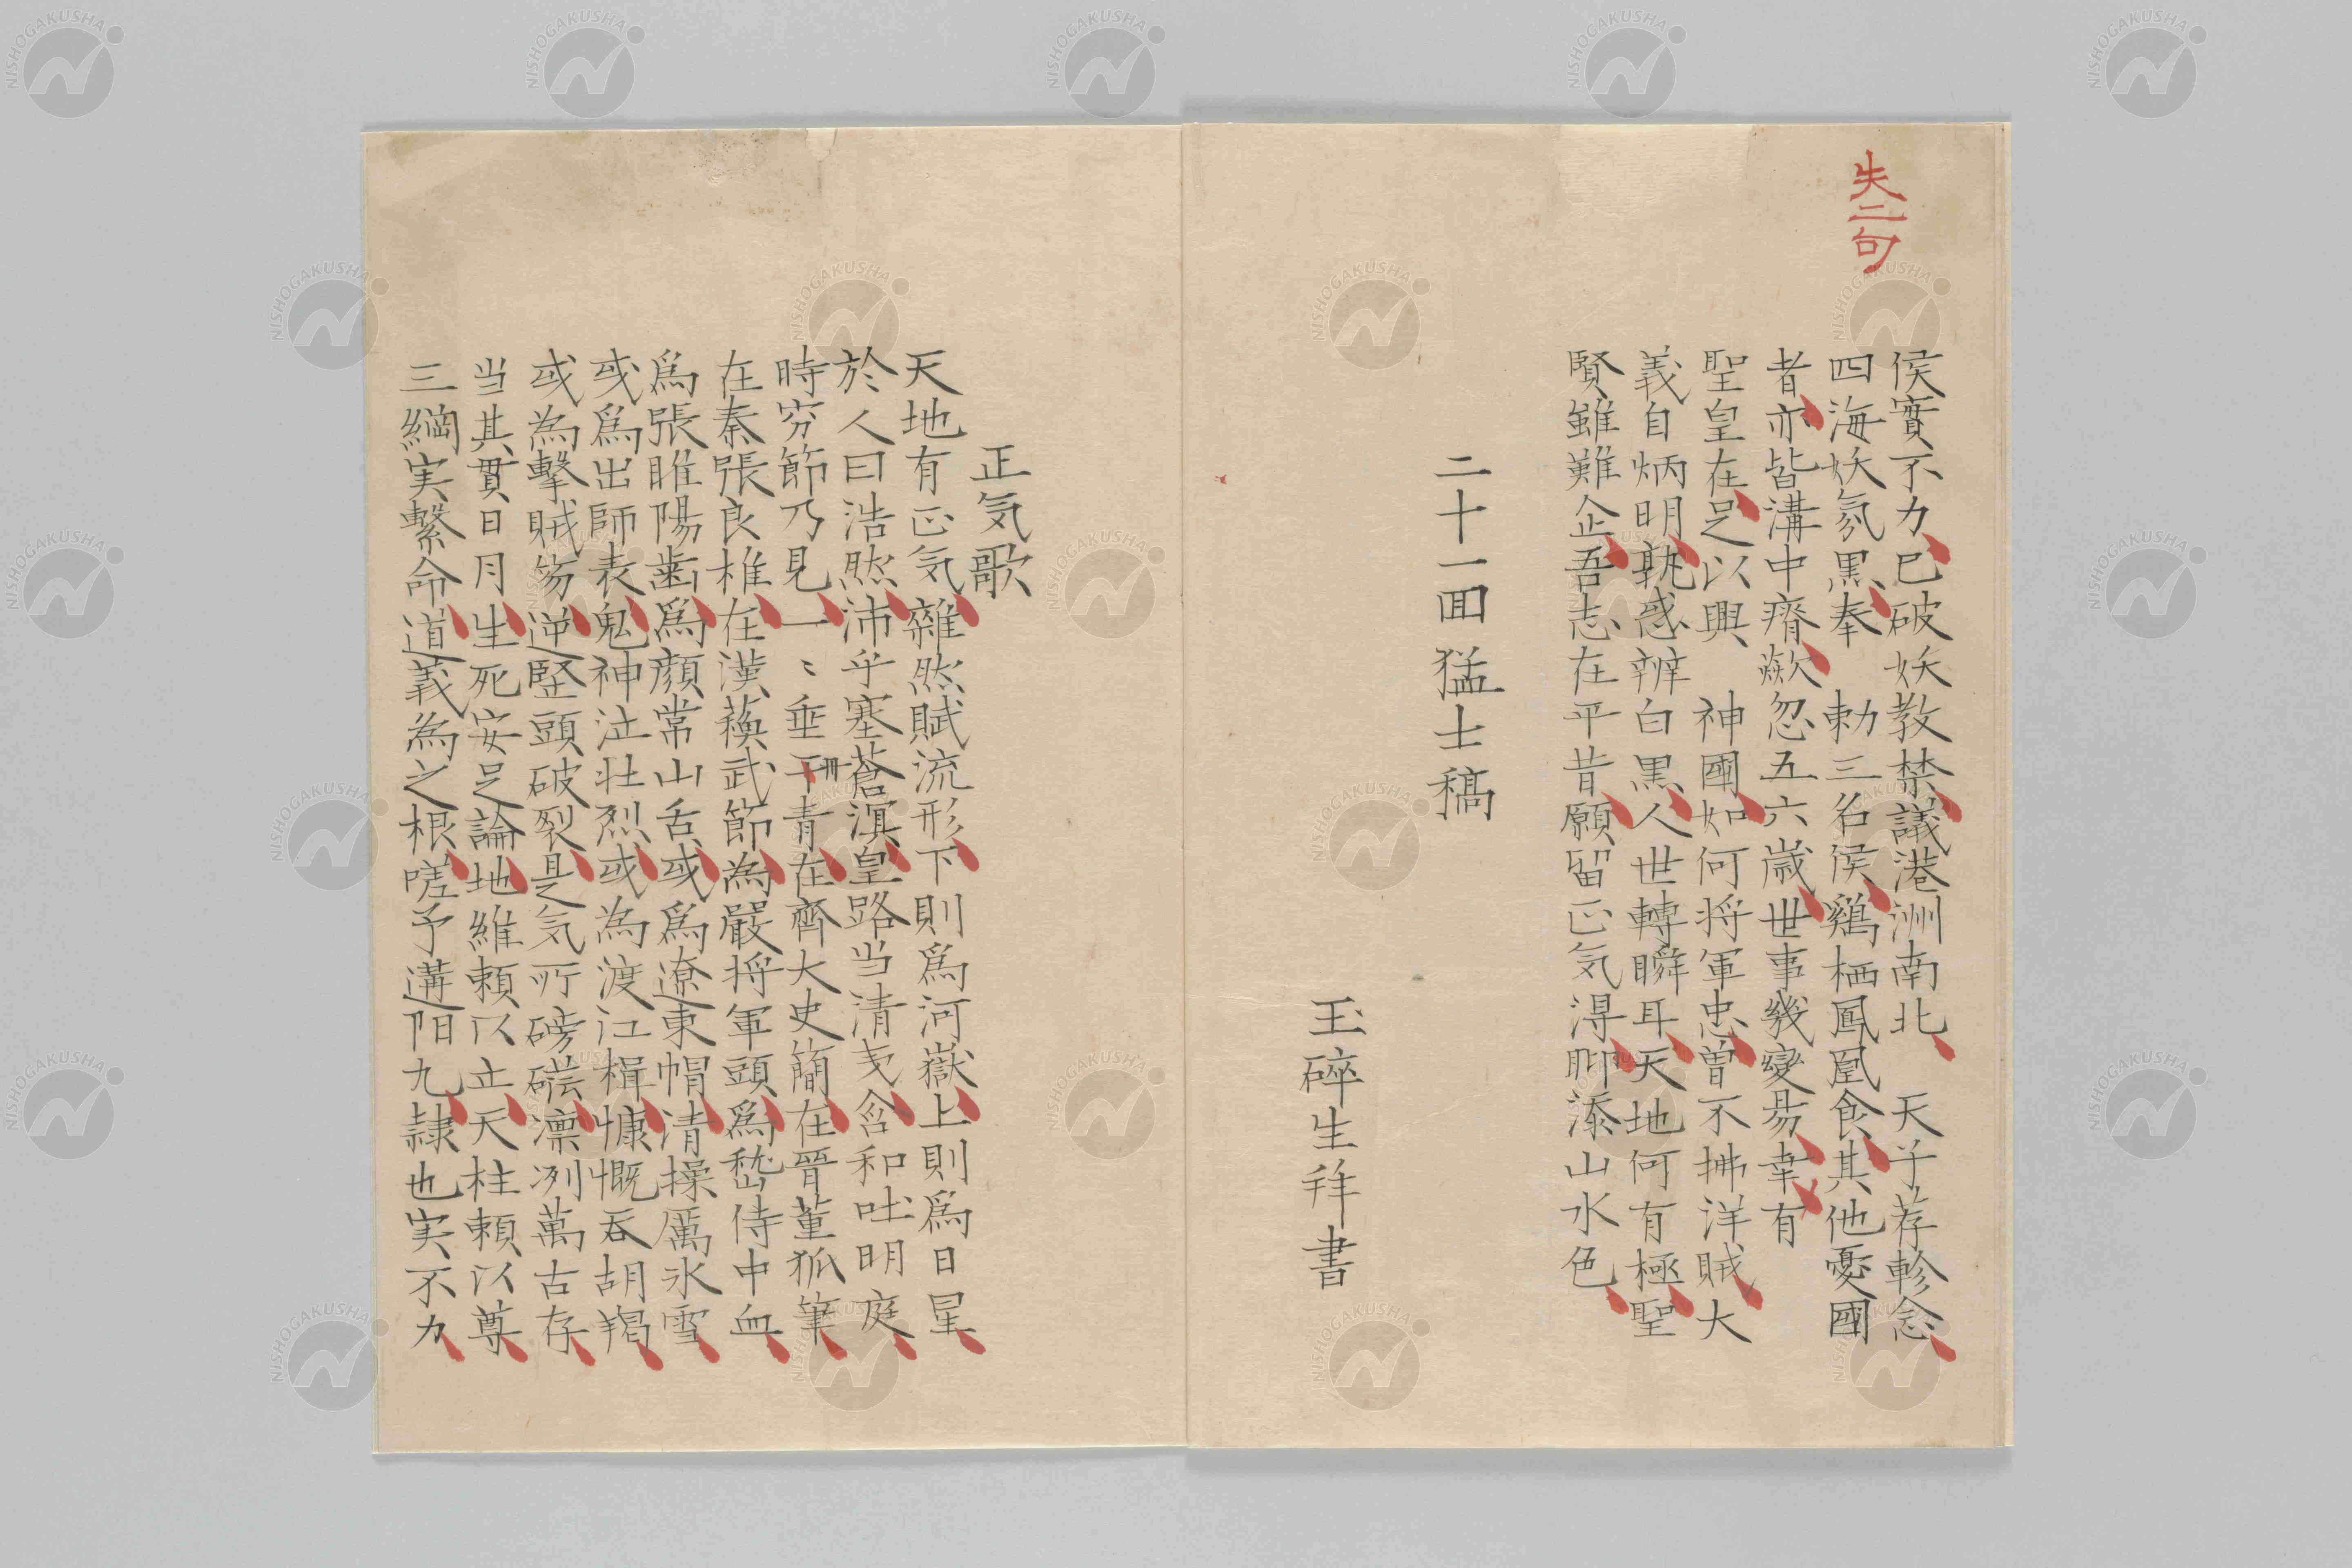 失二句
侯實不力已破妖教禁議港洲南北　天子荐軫念
四海妖氛黒奉　勅三名侯鷄栖鳳凰食其他憂國
者亦皆溝中瘠歘忽五六歳世事幾變易幸有
聖皇在足以興　神國如何将軍忠曽不拂洋賊大
義自炳明孰惑辨白黒人世轉瞬耳天地何有極聖
賢雖難企吾志在平昔願留正気得聊添山水色
二十一回猛士稿
玉碎生拝書
正気歌
天地有正気雜然賦流形下則為河嶽上則為日星
於人曰浩然沛乎塞蒼溟皇路当清夷含和吐明庭
時窮節乃見一〻垂丹青在齊大史簡在晉董狐筆
在秦張良椎在漢蘓武節為嚴将軍頭為嵇侍中血
為張睢陽齒為顔常山舌或為遼東帽清操厲氷雪
或為出師表鬼神泣壮烈或為渡江楫慷慨呑胡羯
或為撃賊笏逆竪頭破裂是気所磅礴凛冽萬古存
当其貫日月生死安足論地維頼以立天柱頼以尊
三綱実繋命道義為之根嗟予遘阳九隷也実不力
NISHOGAKUSHA